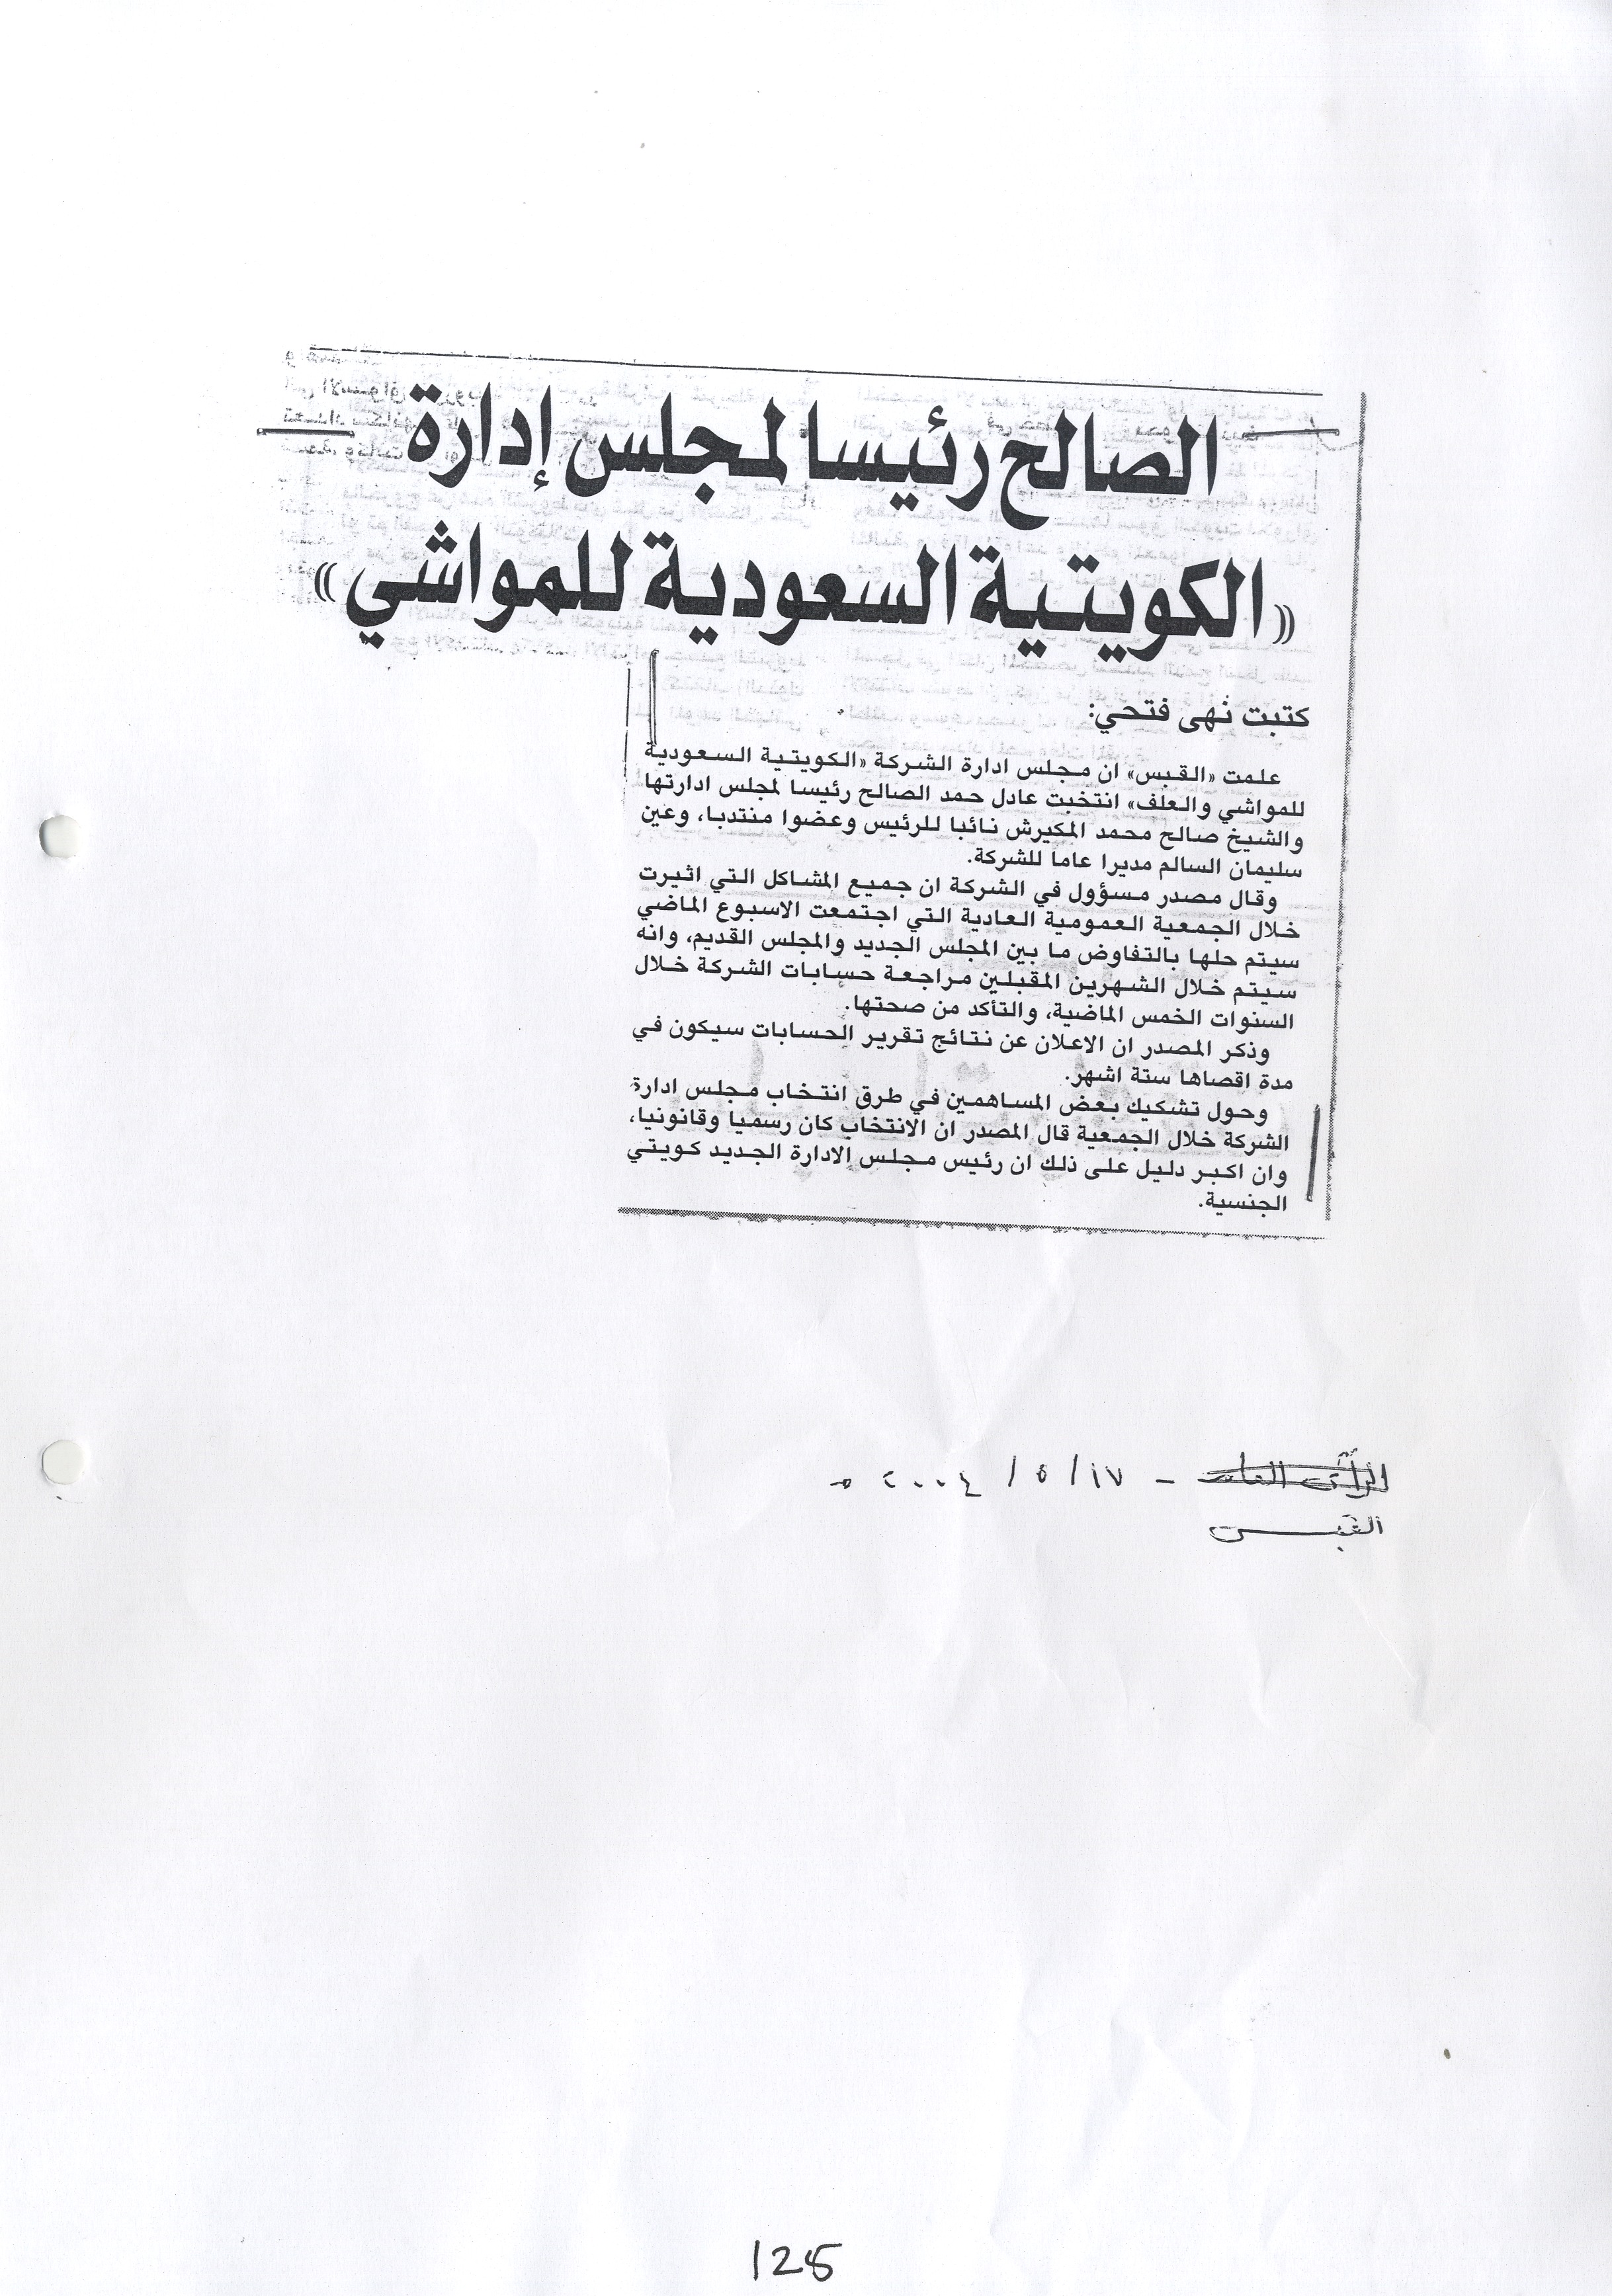 الصالح رئيسا لمجلس إدارة
«الكويتية السعودية للمواشي»
كتبت نهى فتحي:
علمت «القبس» ان مجلس ادارة الشركة «الكويتية السعودية
للمواشي والعلف» انتخبت عادل حمد الصالح رئيسا لمجلس ادارتها
والشيخ صالح محمد المكيرش نائبا للرئيس وعضوا منتدبا، وعين
سليمان السالم مديرا عاما للشركة.
وقال مصدر مسؤول في الشركة ان جميع المشاكل التي اثيرت
خلال الجمعية العمومية العادية التي اجتمعت الاسبوع الماضي
سيتم حلها بالتفاوض ما بين المجلس الجديد والمجلس القديم، وانه
سيتم خلال الشهرين المقبلين مراجعة حسابات الشركة خلال
السنوات الخمس الماضية، والتأكد من صحتها.
وذكر المصدر ان الاعلان عن نتائج تقرير الحسابات سيكون في
مدة اقصاها ستة اشهر.
وحول تشكيك بعض المساهمين في طرق انتخاب مجلس ادارة
الشركة خلال الجمعية قال المصدر ان الانتخاب كان رسميا وقانونيا،
وان اكبر دليل على ذلك ان رئيس مجلس الادارة الجديد كويتي
الجنسية.
- ١٧ / ٥ / ٢٠٠٤
القبس
125